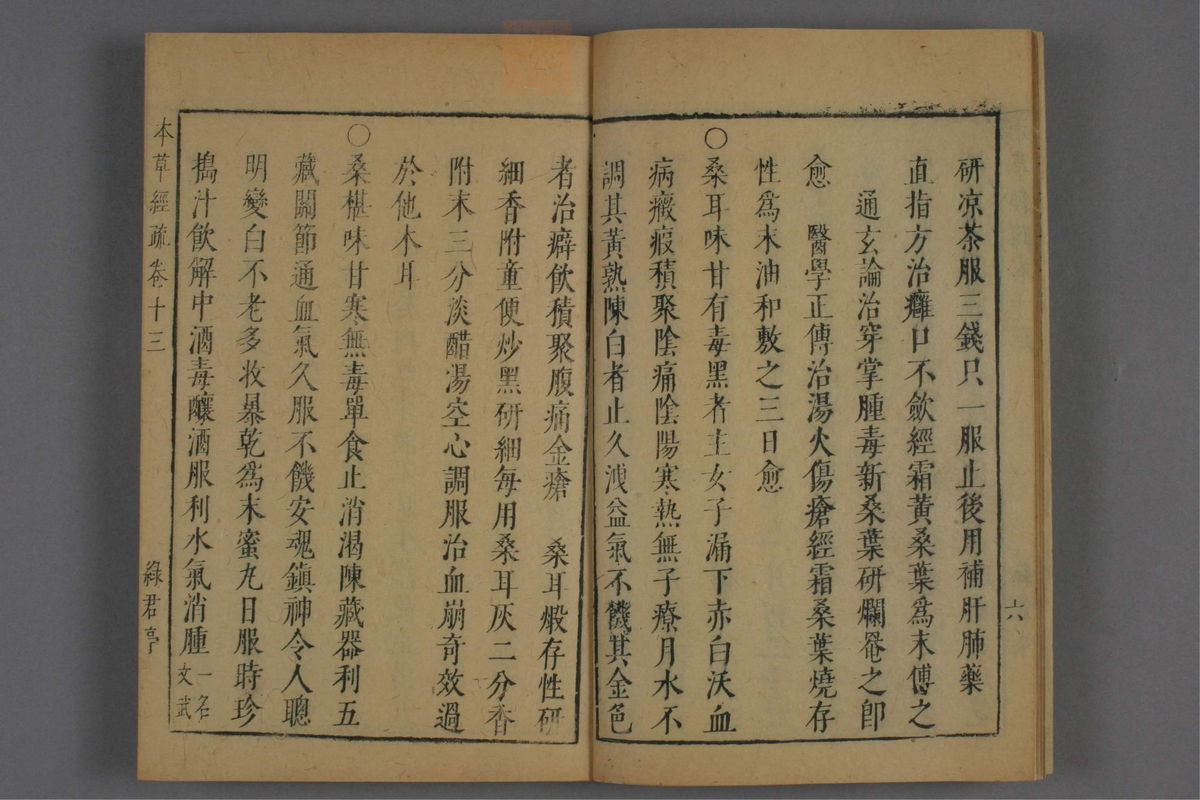 研凉茶服三錢只一服止後用補肝肺藥
直指方治癰口不斂經霜黃桑葉爲末傅之
通玄論治穿掌腫毒新桑葉研爛罨之卽
愈　醫學正傳治湯火傷瘡經霜桑葉燒存
性爲末油和敷之三日愈
○桑耳味甘有毒黑者主女子漏下赤白沃血
病癥瘕積聚陰痛陰陽寒熱無子療月水不
調其黃熟陳白者止久洩益氣不饑其金色
六
者治癖飲積聚腹痛金瘡　桑耳煅存性研
細香附童便炒黑研細每用桑耳灰二分香
附末三分淡醋湯空心調服治血崩奇效過
於他木耳
○桑椹味甘寒無毒單食止消渴陳藏器利五
藏關節通血氣久服不饑安魂鎮神令人聰
明變白不老多收暴乾爲末蜜丸日服時珍
搗汁飲解中酒毒釀酒服利水氣消腫一名文武
本草經疏卷十三
綠君亭